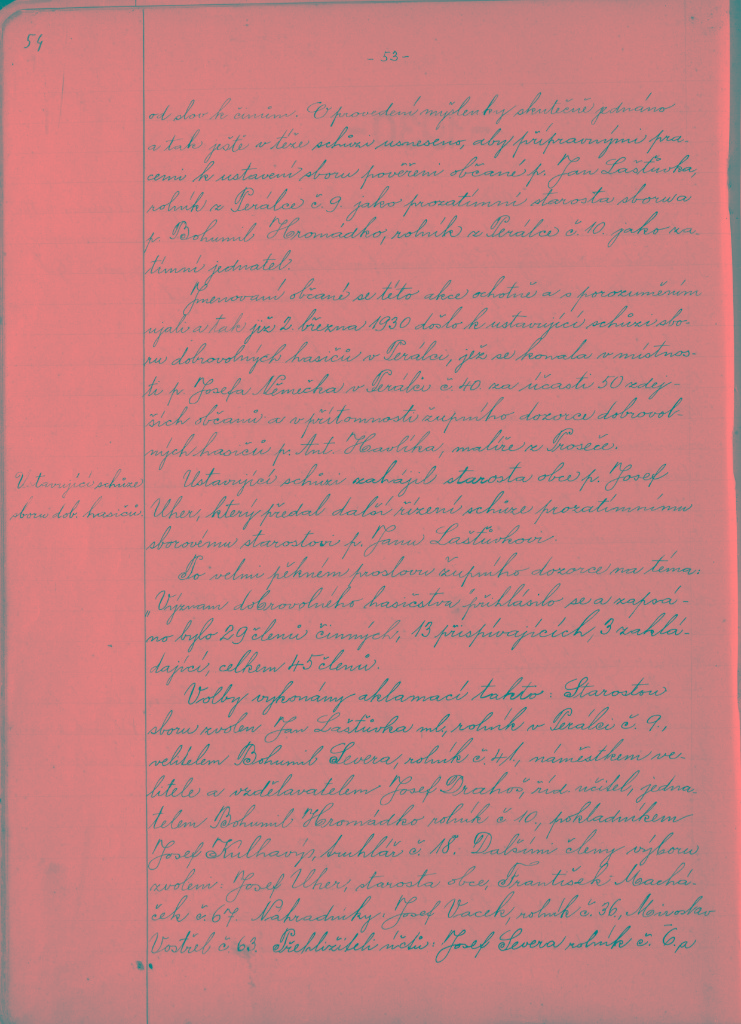 54
- 53 -
od slov k činům. O provedení myšlenky skutečně jednáno
a tak ještě v téže schůzi usneseno, aby přípravnými pra-
cemi k ustavení sboru pověřeni občané p. Jan Laštůvka,
rolník z Perálce č. 9. jako prozatímní starosta sboru a
p. Bohumil Hromádko, rolník z Perálce č. 10. jako za-
tímní jednatel.
Jmenovaní občané se této akce ochotně a s porozuměním
ujali a tak již 2. března 1930 došlo k ustavující schůzi sbo-
ru dobrovolných hasičů v Perálci, jež se konala v místnos-
ti p. Josefa Němečka v Perálci č. 40. za účasti 50 zdej-
ších občanů a v přítomnosti župního dozorce dobrovol-
ných hasičů p. Ant. Havlíka, malíře z Proseče.
Ustavující schůze
sboru dob. hasičů.
Ustavující schůzi zahájil starosta obce p. Josef
Uher, který předal další řízení schůze prozatímnímu
sborovému starostovi p. Janu Laštůvkovi.
Po velmi pěkném proslovu župního dozorce na téma:
„Význam dobrovolného hasičstva" přihlásilo se a zapsá-
no bylo 29 členů činných, 13 přispívajících, 3 zaklá-
dající, celkem 45 členů.
Volby vykonány aklamací takto: Starostou
sboru zvolen Jan Laštůvka ml., rolník v Perálci č. 9.,
velitelem Bohumil Severa, rolník č. 41., náměstkem ve-
litele a vzdělavatelem Josef Drahoš, říd. učitel, jedna-
telem Bohumil Hromádko rolník č 10., pokladníkem
Josef Kulhavý, truhlář č. 18. Dalšími členy výboru
zvoleni: Josef Uher, starosta obce, František Machá-
ček č. 67. Náhradníky: Josef Vacek, rolník č. 36., Miroslav
Vostřel č. 63. Přehlížiteli účtů: Josef Severa rolník č. 6. a